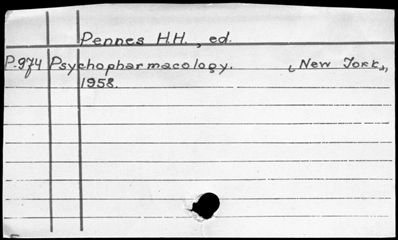 Pennes H.H., ed.
P.974 Psychopharmacology. New York,
1958.